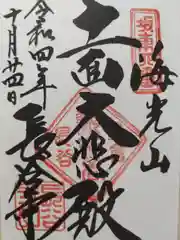 坂東第四番
海光山
十一面大悲殿
長谷寺
令和四年
十月廿四日